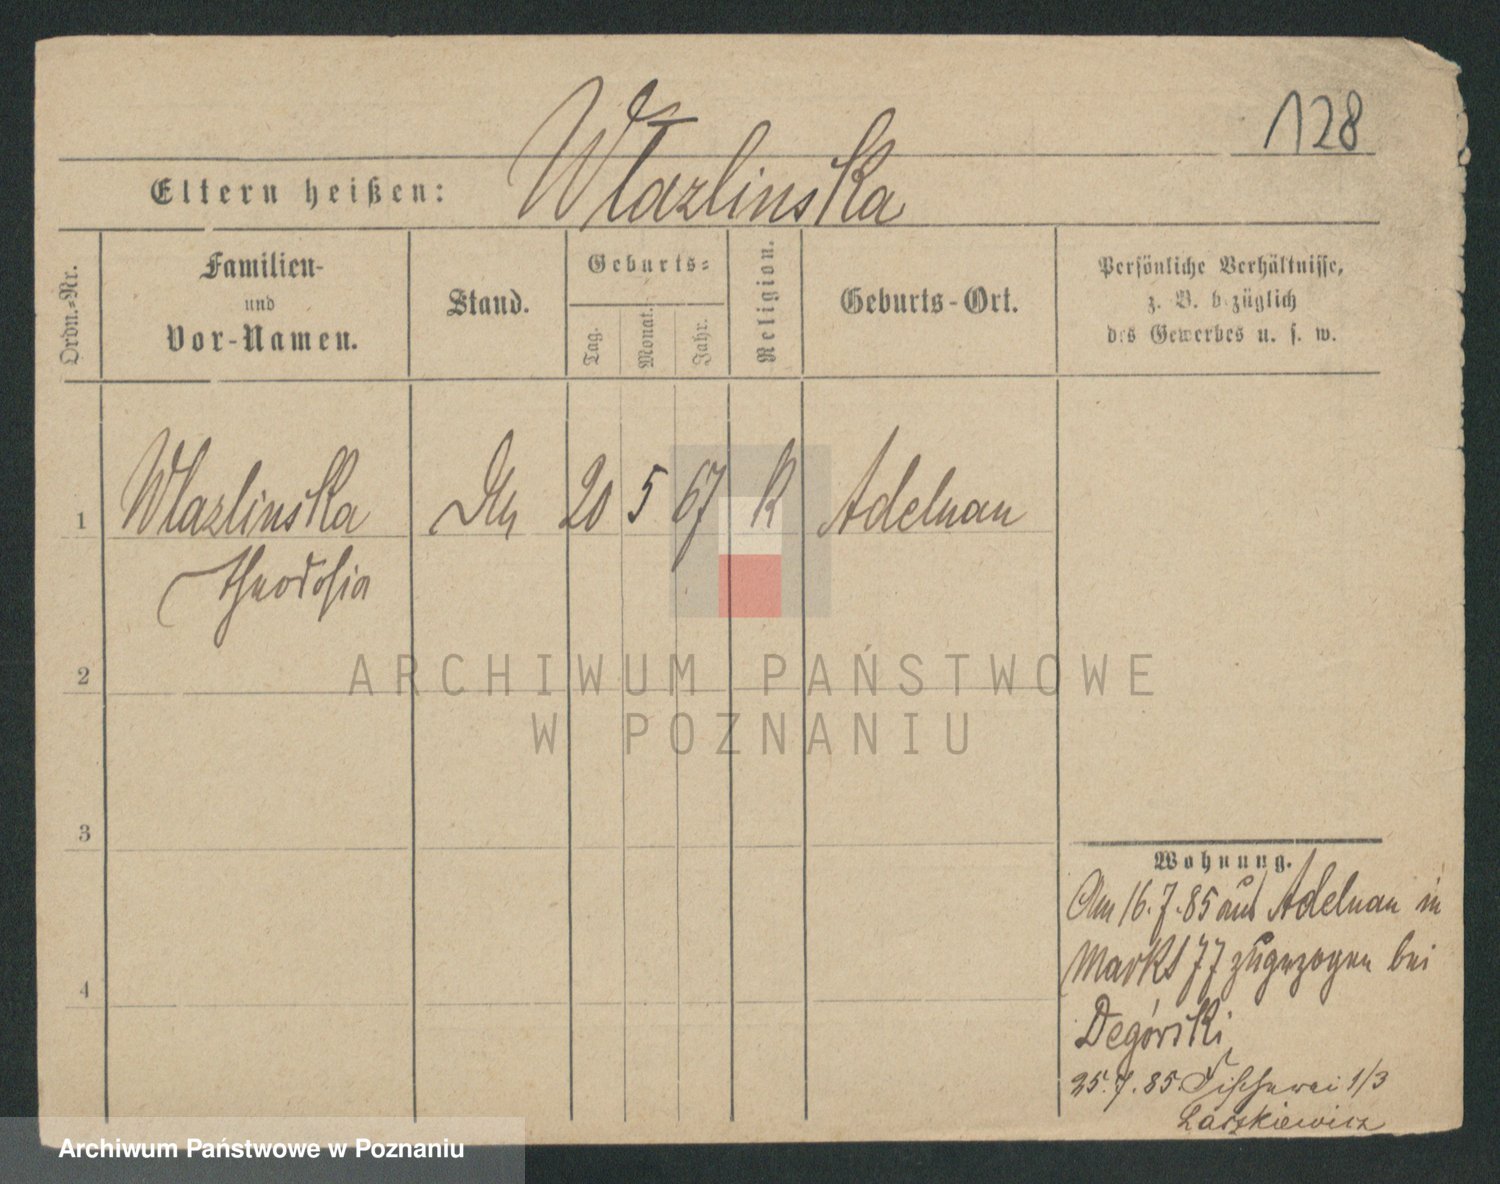 128
Włazlinska
Eltern heißen:
Ordn.-Nr.
Familien-
und
Vor-Namen.
Stand.
Geburts-
Tag.
Monat.
Jahr.
Religion.
Geburts-Ort.
Persönliche Verhältnisse,
z. B. bezüglich
des Gewerbes u. s. w.
1 Wlazlinska 20 5 67 K Adelnau
Theodosia
2
3
4
ARCHIWUM PAŃSTWOWE
W POZNANIU
Wohnung.
Am 16.7.85 aus Adelnau in
Markt 77 zugezogen bei
Degórski
25.7.85 Fischerei 1/3
Laszkiewicz
Archiwum Państwowe w Poznaniu